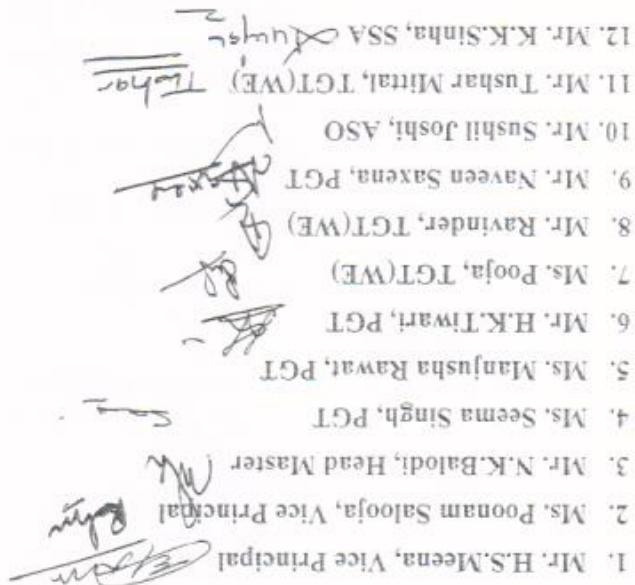 1. Mr. H.S.Meena, Vice Principal
2. Ms. Poonam Salooja, Vice Principal
3. Mr. N.K.Balodi, Head Master
4. Ms. Seema Singh, PGT
5. Ms. Manjusha Rawat, PGT
6. Mr. H.K.Tiwari, PGT
7. Ms. Pooja, TGT(WE)
8. Mr. Ravinder, TGT(WE)
9. Mr. Naveen Saxena, PGT
10. Mr. Sushil Joshi, ASO
11. Mr. Tushar Mittal, TGT(WE) Tushar
12. Mr. K.K.Sinha, SSA